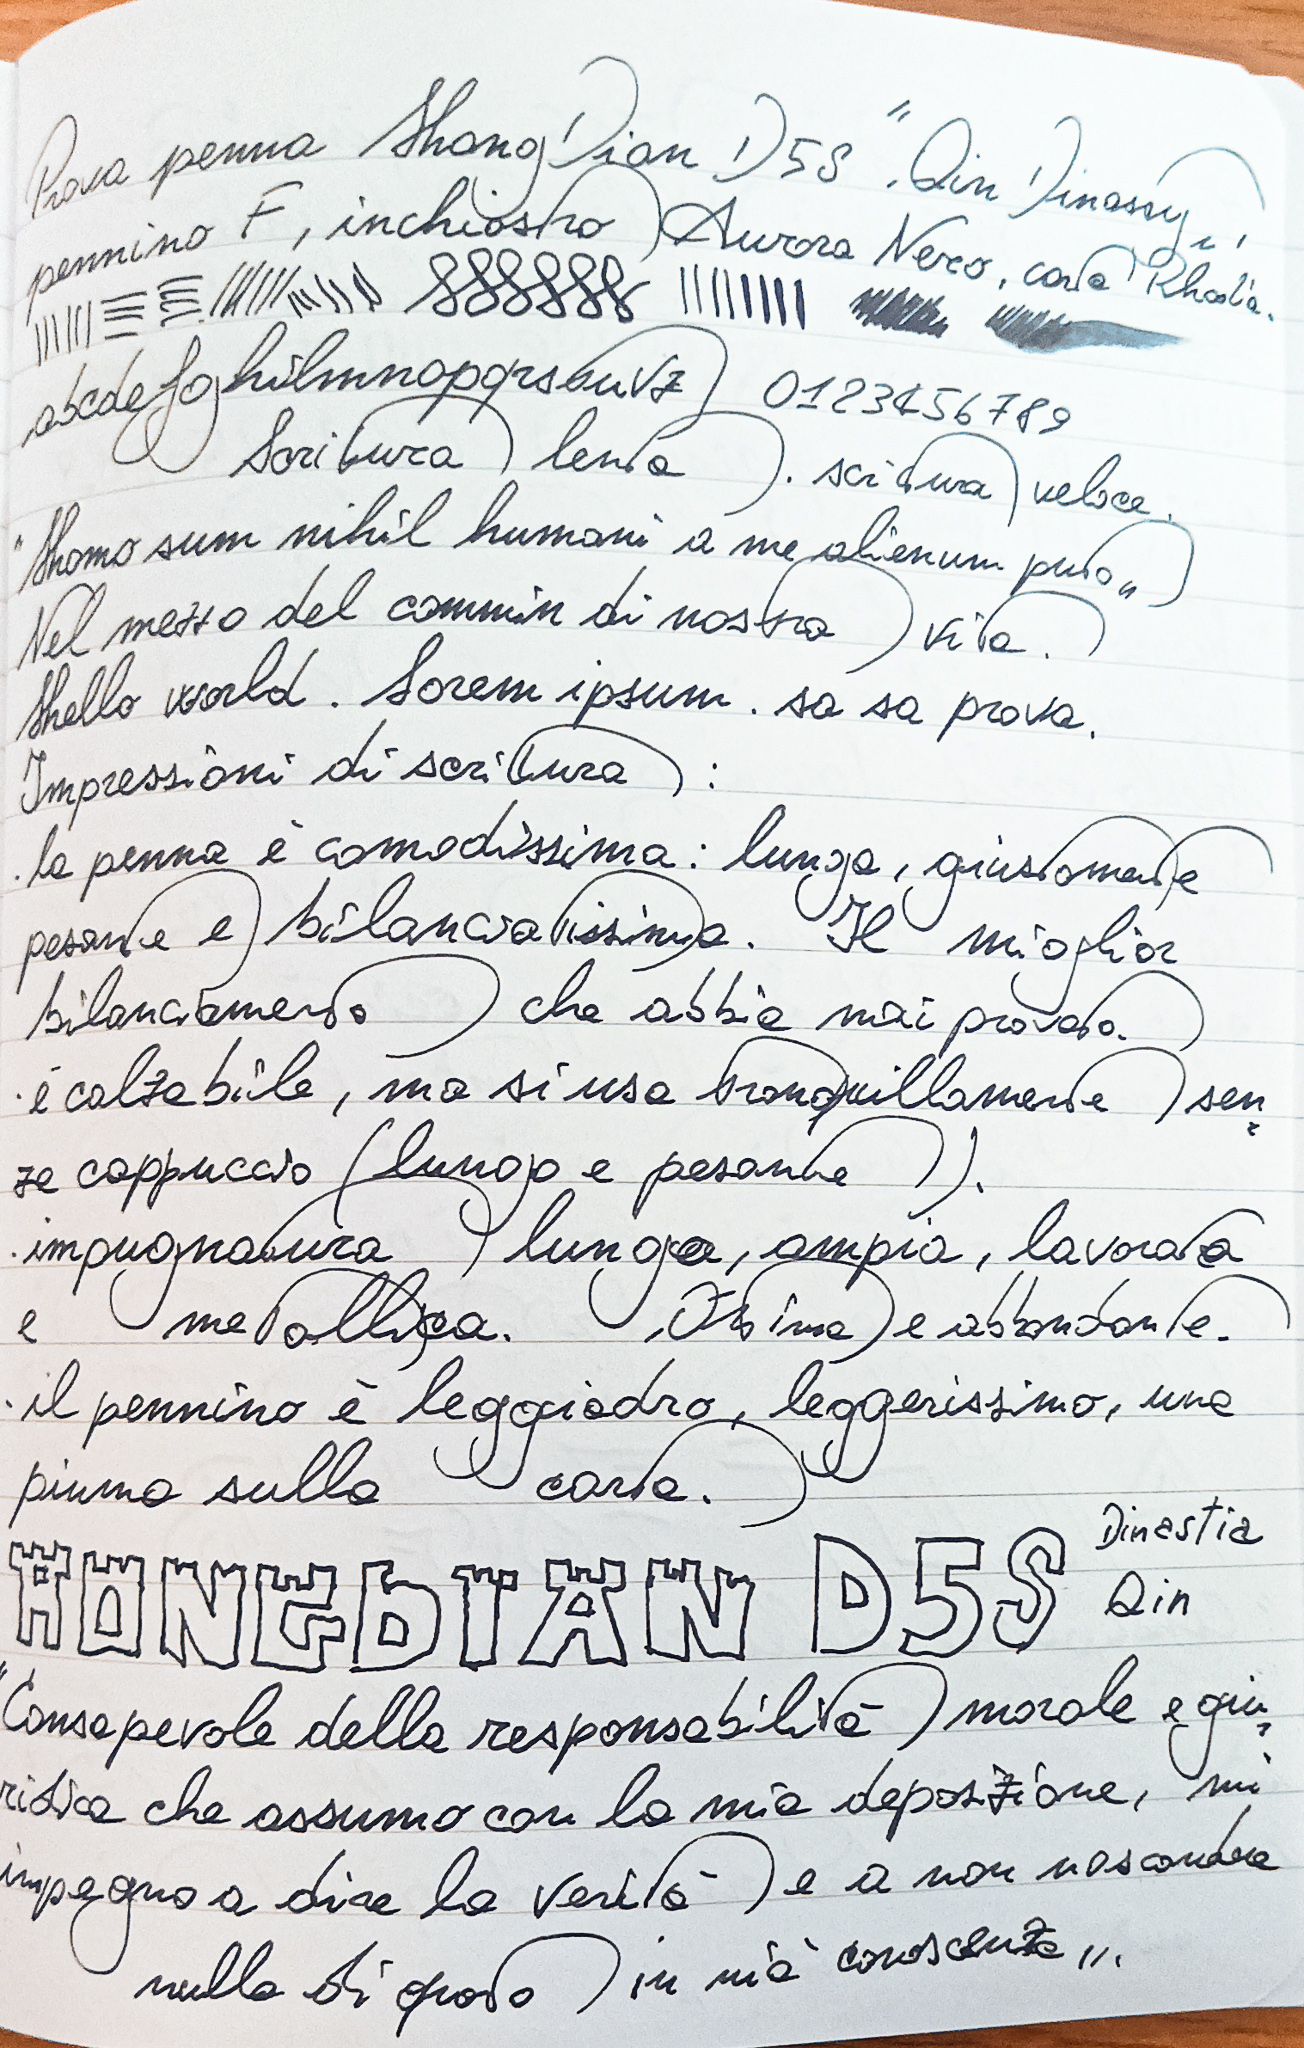 Prova penna HongDian D5S "Qin Dinasty",
pennino F, inchiostro Aurora Nero, carta Rhodia.
abcdefghilmnopqrstuvz 0123456789
Scrittura lenta. scrittura veloce.
"Homo sum nihil humani a me alienum puto"
Nel mezzo del cammin di nostra vita.
Hello world. Lorem ipsum. sa sa prova.
Impressioni di scrittura:
. la penna è comodissima: lunga, giustamente
pesante e bilanciatissima. Il miglior
bilanciamento che abbia mai provato.
· è calzabile, ma si usa tranquillamente sen-
za cappuccio (lungo e pesante).
. impugnatura lunga, ampia, lavorata
e metallica. Ottima e abbondante.
· il pennino è leggiadro, leggerissimo, una
piuma sulla carta.
HONGDIAN D5S Dinastia
Qin
"Consapevole della responsabilità morale e giu-
ridica che assumo con la mia deposizione, mi
impegno a dire la verità e a non nascondere
nulla di quato in mia conoscenza".